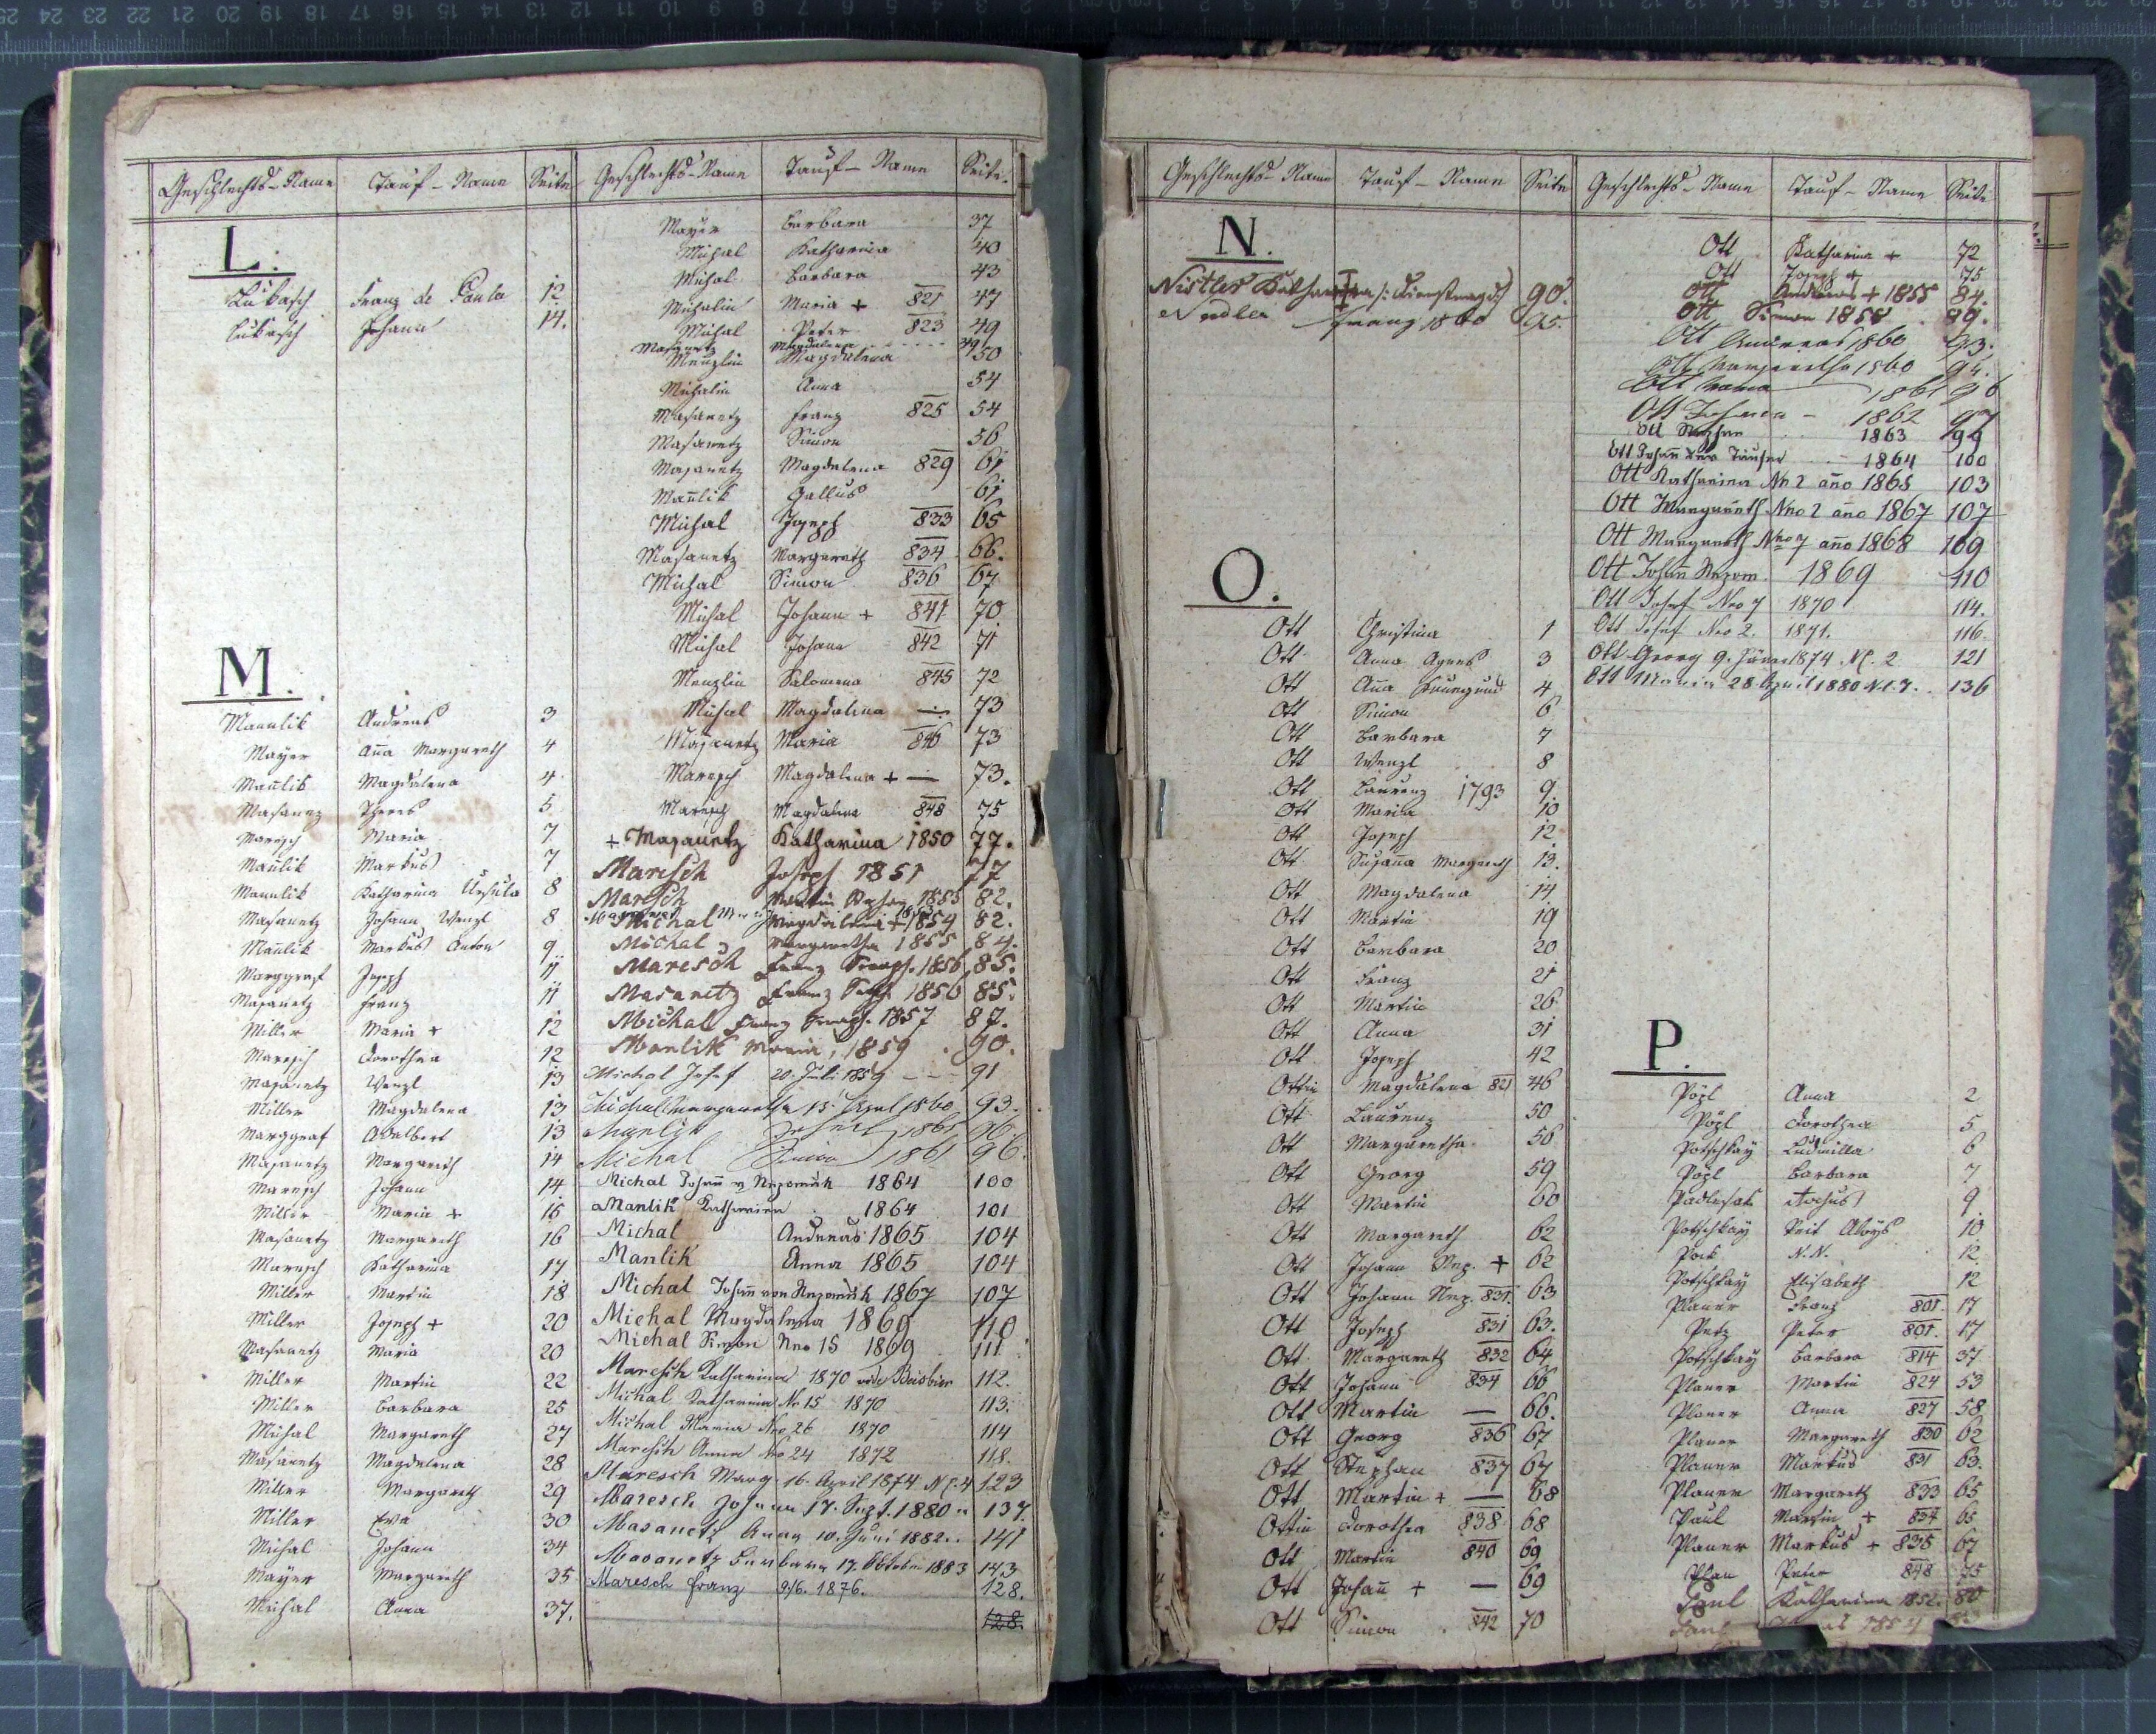 Geschlechts-Name Tauf-Name Seite
L.
Lukasch Franz de Paula 12.
Lukasch Johann 14.
M.
Mannlik Andreas 3
Mayer Ana Margareth 4
Manlik Magdalena 4
Masanez Theres 5
Maresch Maria 7
Manlik Markus 7
Mannlik Katharina Ursula 8
Masanetz Johann Wenzl 8
Manlik Markus Anton 9
Marggraf Joseph 11
Masanetz Franz 11
Miller Maria + 12
Maresch Dorothea 12
Masanetz Wenzl 13
Miller Magdalena 13
Marggraf Adalbert 13
Masanetz Margareth 14
Maresch Johann 14
Miller Maria + 15
Masanetz Margareth 16
Maresch Katharina 17
Miller Martin 18
Miller Joseph + 20
Masanetz Maria 20
Miller Martin 22
Miller Barbara 25
Michal Margareth 27
Masanetz Magdalena 28
Miller Margareth 29
Miller Eva 30
Michal Johann 34
Mayer Margareth 35
Michal Anna 37.
Geschlechts-Name Tauf-Name Seite.
Mayer Barbara 37
Michal Katharina 40
Michal Barbara 43
Michalin Maria + 821 47
Michal Peter 823 49
Masanetz Magdalena 49
Menzlin Magdalena 50
Michalin Anna 54
Masanetz Franz 825 54
Masanetz Simon 56
Masanetz Magdalena 829 61
Manlik Gallus 61
Michal Joseph 833 65
Masanetz Margareth 834 66.
Michal Simon 836 67
Michal Johann + 841 70
Michal Johann 842 71
Menzlin Salomena 845 72
Michal Magdalena — 73
Masanetz Maria 846 73
Maresch Magdalena + — 73.
Maresch Magdalena 848 75
+ Masanetz Katharina 1850 77.
Maresch Joseph 1851 77
Maresch 1853 82.
Michal Magdalena + 1854 82.
Michal Margaretha 1855 84.
Maresch Franz Seraph. 1856 85.
Masanetz Franz Seraph. 1856 85.
Michal Franz Seraph. 1857 87.
Manlik Maria, 1859 90.
Michal Josef 20. Juli 1859 - - 91
Michal Margaretha 15. April 1860 93.
Manlik 1861 96
Michal Simon 1861 96.
Michal Johan v Nepomuk 1864 100
Manlik Katharina 1864 101
Michal Andreas 1865 104
Manlik Anna 1865 104
Michal Johan von Nepomuk 1867 107
Michal Magdalena 1869 110
Michal Simon Nro 15 1869 111
Maresch Katharina 1870 112.
Michal Katharina No 15 1870 113.
Michal Maria Nro 26 1870 114
Maresch Anna No 24 1872 118.
Maresch Marg. 16. April 1874 N C. 4 123
Maresch Johann 17. Sept. 1880 137.
Masanetz Anna 10. Juni 1882.. 141
Masanetz Barbara 17. Oktober 1883 143
Maresch Franz 9/6. 1876. 128.
128.
Geschlechts-Name Tauf-Name Seite
N.
Nistler Katharina /: Dienstmagd :/ 90.
Nedler Franz 1860 95.
O.
Ott Christina 1
Ott Anna Agnes 3
Ott Ana Kunegund 4
Ott Simon 6
Ott Barbara 7
Ott Wenzl 8
Ott Laurenz 1793 9
Ott Maria 10
Ott Joseph 12
Ott Susana Margareth 13.
Ott Magdalena 14
Ott Martin 19
Ott Barbara 20
Ott Franz 21
Ott Martin 26
Ott Anna 31
Ott Joseph 42
Ottin Magdalena 821 46
Ott Laurenz 50
Ott Margaretha 56
Ott Georg 59
Ott Martin 60
Ott Margareth 62
Ott Johann Nep. + 62
Ott Johann Nep. 831. 63
Ott Joseph 831 63.
Ott Margareth 832 64
Ott Johann 834 66
Ott Martin — 66.
Ott Georg 836 67
Ott Stephan 837 67
Ott Martin + — 68
Ottin Dorothea 838 68
Ott Martin 840 69
Ott Johan + — 69
Ott Simon 842 70
Geschlechts-Name Tauf-Name Seite
Ott Katharina + 72
Ott Joseph + 75
Ott Andreas + 1855 84.
Ott Simon 1858 89.
Ott Andreas 1860 93.
Ott Margaretha 1860 94.
Ott Maria 1861 96
Ott Johann - 1862 97
Ott Stephan 1863 99
Ott Johan der Täufer 1864 100
Ott Katharina No 2 ano 1865 103
Ott Margareth Nro 2 ano 1867 107
Ott Margareth Nro 7 ano 1868 109
Ott Johan Nepom. 1869 110
Ott Josef Nro 7 1870 114.
Ott Josef Nro 2. 1871. 116.
Ott Georg 9. Jänner 1874 N C. 2 121
Ott Maria 28 April 1880 N.C. 7. 136
P.
Pözl Anna 2
Pözl Dorothea 5
Potschkay Ludmilla 6
Pözl Barbara 7
Padlesak 9
Potschkay Veit Aloys 10
Pock N.N. 12
Potschkay Elisabeth 12
Planer Franz 801. 17
Petz Peter 801. 17
Potschkay Barbara 814 37
Planer Martin 824 53
Planer Anna 827 58
Planer Margareth 830 62
Planer Markus 831 63.
Planer Margareth 833 65
Paul Martin + 834 65
Planer Markus + 835 67
Plan Peter 848 75
Paul Katharina 1852. 80
Paul 1854